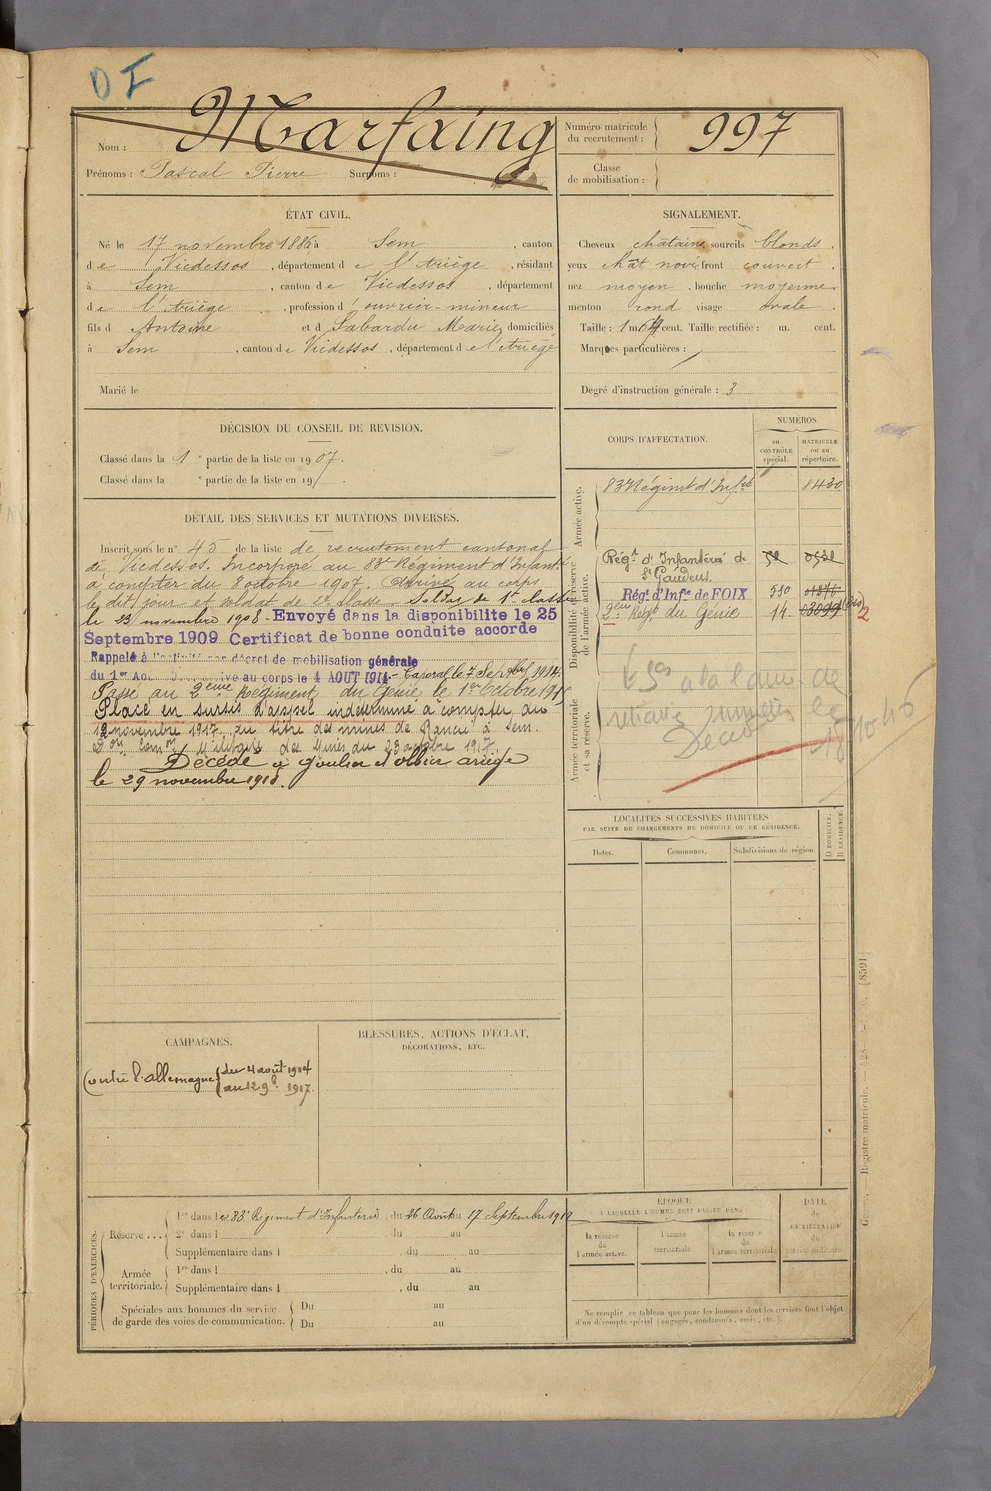 DI
Nom : Marfaing
Prénoms : Pascal Pierre Surnoms :
Numéro matricule du recrutement : 997
Classe de mobilisation :
ÉTAT CIVIL.
Né le 17 novembre 1886 à Sem, canton
de Vicdessos, département de l'Ariège, résidant
à Sem, canton de Vicdessos, département
de l'Ariège, profession d'ouvrier-mineur
fils d'Antoine et d Sabardu Marie, domiciliés
à Sem, canton de Vicdessos, département de l'Ariège
Marié le
SIGNALEMENT.
Cheveux châtains, sourcils blonds.
yeux chât front couvert,
nez moyen, bouche moyenne
menton rond visage ovale.
Taille : 1 m. cent. Taille rectifiée : m. cent.
Marques particulières :
Degré d'instruction générale : 3
DÉCISION DU CONSEIL DE REVISION.
Classé dans la 1e partie de la liste en 1907.
Classé dans la e partie de la liste en 19
DÉTAIL DES SERVICES ET MUTATIONS DIVERSES.
Inscrit sous le n° 45 de la liste de recrutement cantonal
de Vicdessos. Incorporé au 83e Régiment d'Infanterie
à compter du 8 octobre 1907. Arrivé au corps
le dit jour et soldat de 2e classe. Soldat de 1e classe
le 23 novembre 1908 - Envoyé dans la disponibilite le 25
Septembre 1909 Certificat de bonne conduite accorde
Rappelé à l'activité par décret de mobilisation générale
du 1er Août Arrivé au corps le 4 AOUT 1914 - Caporal le 7 Septbre 1914.
Passé au 2ème Régiment du Génie le 1er Octobre 1915
Placé en sursis d'appel indéterminé à compter du
12 novembre 1917, au titre des mines de Rancié à Sem.
Don Comon Militaire des Mines du 23 octobre 1917.
Décédé à Goulier et Olbier ariège
le 29 novembre 1918.
CORPS D'AFFECTATION.
NUMÉROS
au CONTRÔLE spécial.
MATRICULE ou au répertoire.
Armée active.
83 Régimt d'Infrie 8430
Disponibilité et réserve de l'armée active.
Régnt d'Infanterie de St Gaudens.
Régt d'Infie de FOIX 530
2eme Régt du Génie 14.
Armée territoriale et sa réserve.
Décédé
LOCALITÉS SUCCESSIVES HABITÉES
PAR SUITE DE CHANGEMENTS DE DOMICILE OU DE RÉSIDENCE.
Dates. Communes. Subdivisions de région. D DOMICILE. R RÉSIDENCE.
CAMPAGNES.
Contre l'allemagne (du 4 août 1914
au 12 9bre 1917.
BLESSURES, ACTIONS D'ÉCLAT,
DÉCORATIONS, ETC.
PÉRIODES D'EXERCICES.
Réserve . . . .
1re dans le 83e Régiment d'Infanterie, du 26 Août au 17 Septembre 1912
2e dans l , du au
Supplémentaire dans l , du au
Armée territoriale.
1re dans l , du au
Supplémentaire dans l , du au
Spéciales aux hommes du service de garde des voies de communication.
Du au
Du au
ÉPOQUE
À LAQUELLE L'HOMME DOIT PASSER DANS
la réserve de l'armée active.
l'armée territoriale.
la réserve de l'armée territoriale
DATE de LA LIBÉRATION du service militaire.
Ne remplir ce tableau que pour les hommes dont les services font l'objet
d'un décompte spécial (engagés, condamnés, omis, etc.).
Registre matricule.
[8591]